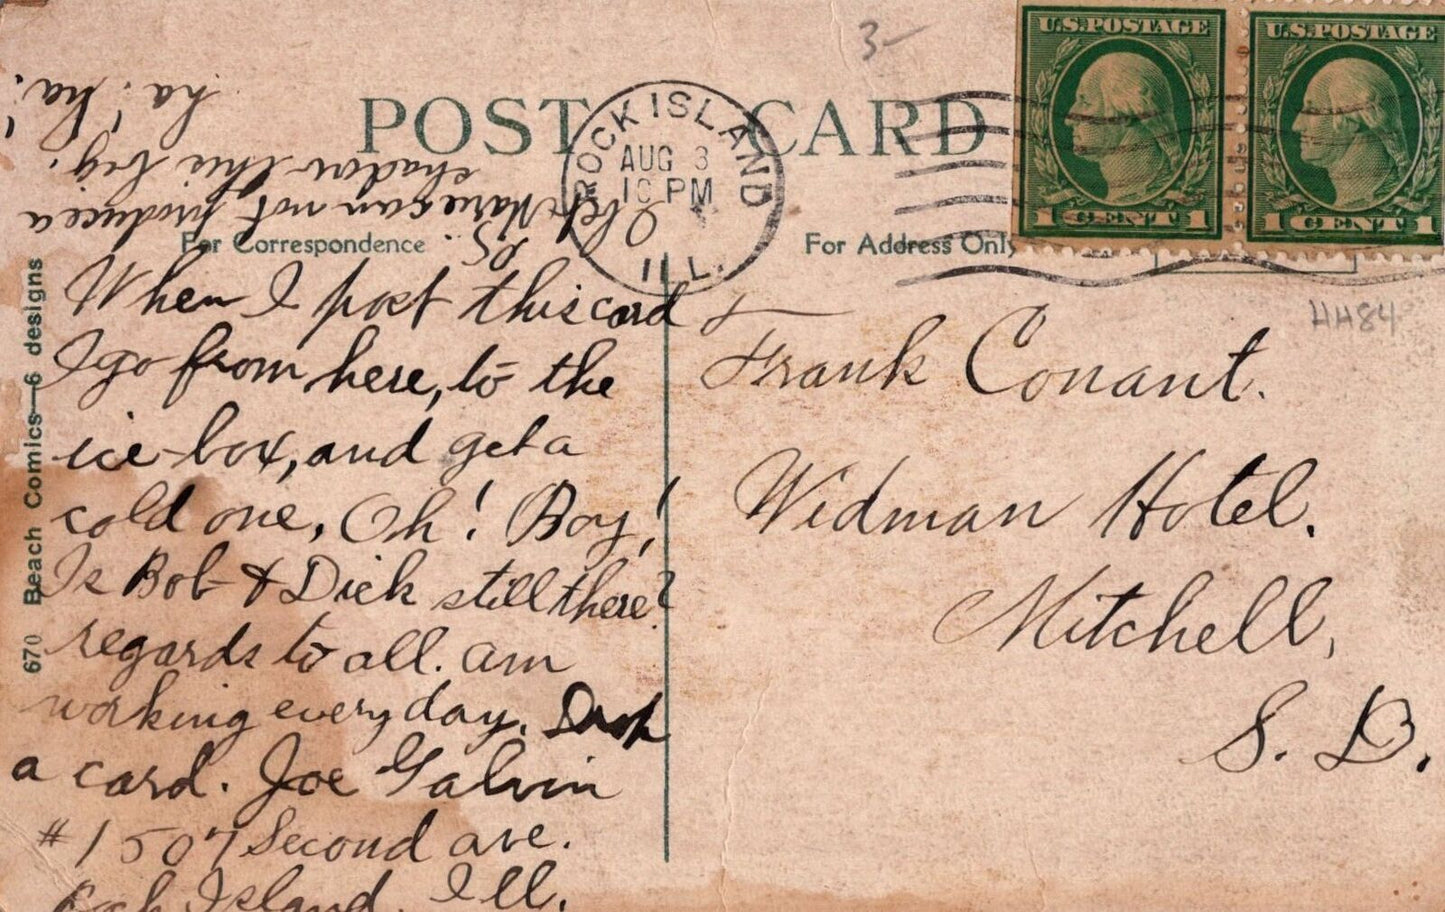 3-
U.S. POSTAGE
1 CENT 1
U.S. POSTAGE
1 CENT 1
POST CARD
ROCK ISLAND
AUG 3
10 PM
ILL.
For Correspondence
For Address Only
670 Beach Comics—6 designs
When I post this card
I go from here, to the
ice-box, and get a
cold one, Oh! Boy!
Is Bob & Dick still there?
regards to all. am
working every day.
a card. Joe Galvin
#1507 Second ave.
Rock Island, Ill.
PS. I bet Marie can not produce a
shador this big.
ha! ha! ha!
HH84
Frank Conant.
Widman Hotel.
Mitchell,
S. D.